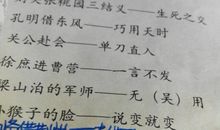 张桃园三结义——生死之交
孔明借东风——巧用天时
关公赴会——单刀直入
徐庶进曹营——一言不发
梁山泊的军师——无（吴）用
孙猴子的脸——说变就变